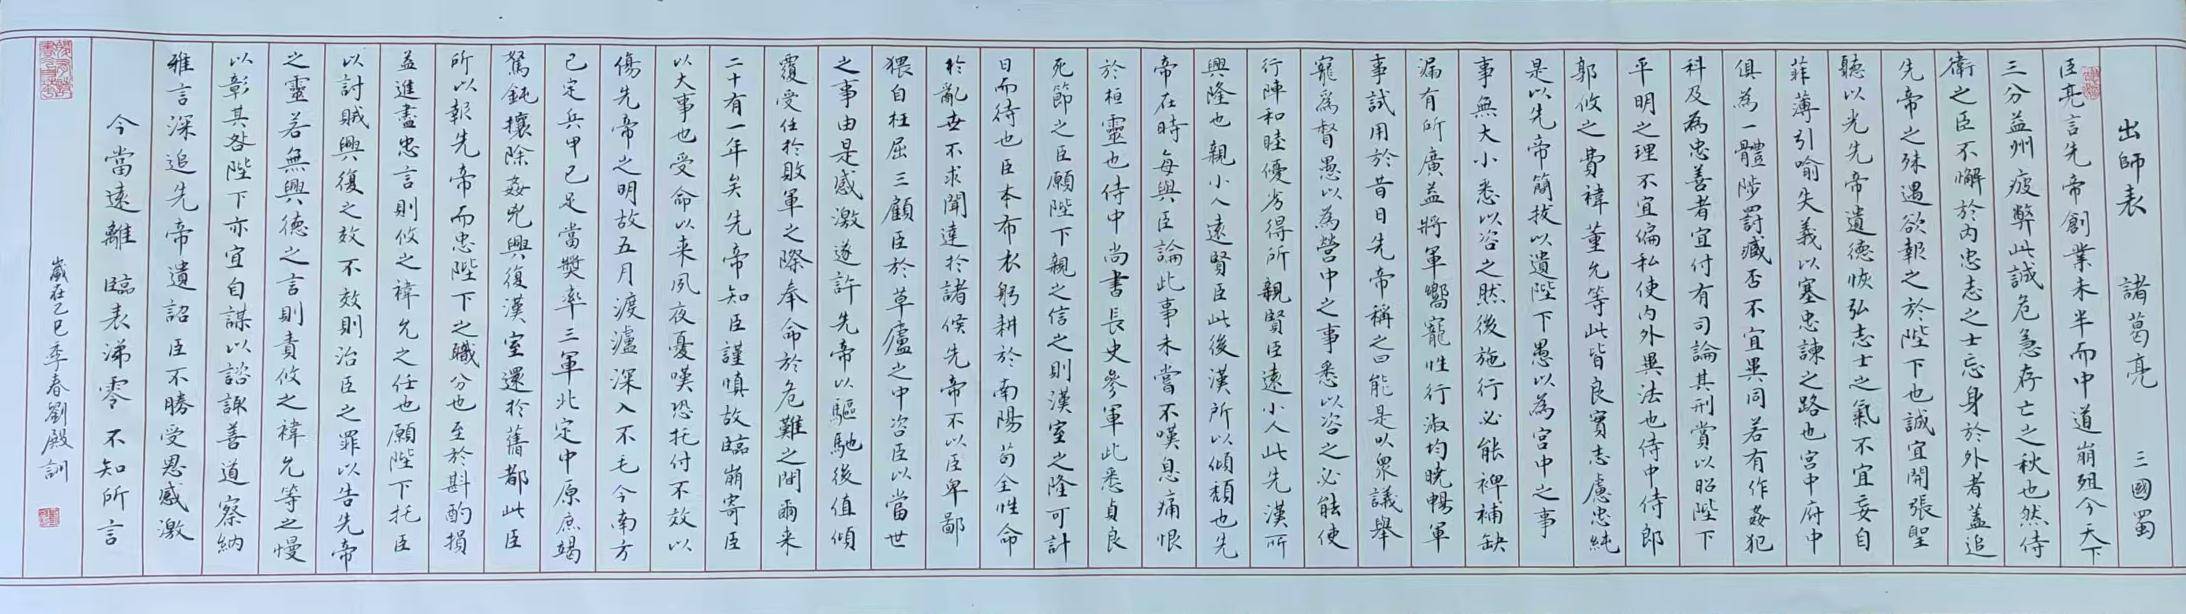 出師表 諸葛亮 三國蜀
臣亮言先帝創業未半而中道崩殂今天下
三分益州疲弊此誠危急存亡之秋也然侍
衛之臣不懈於內忠志之士忘身於外者蓋追
先帝之殊遇欲報之於陛下也誠宜開張聖
聽以光先帝遺德恢弘志士之氣不宜妄自
菲薄引喻失義以塞忠諫之路也宮中府中
俱為一體陟罰臧否不宜異同若有作姦犯
科及為忠善者宜付有司論其刑賞以昭陛下
平明之理不宜偏私使內外異法也侍中侍郎
郭攸之費禕董允等此皆良實志慮忠純
是以先帝簡拔以遺陛下愚以為宮中之事
事無大小悉以咨之然後施行必能裨補缺
漏有所廣益將軍嚮寵性行淑均曉暢軍
事試用於昔日先帝稱之曰能是以眾議舉
寵為督愚以為營中之事悉以咨之必能使
行陣和睦優劣得所親賢臣遠小人此先漢所
興隆也親小人遠賢臣此後漢所以傾頹也先
帝在時每與臣論此事未嘗不嘆息痛恨
於桓靈也侍中尚書長史參軍此悉貞良
死節之臣願陛下親之信之則漢室之隆可計
日而待也臣本布衣躬耕於南陽苟全性命
於亂世不求聞達於諸侯先帝不以臣卑鄙
猥自枉屈三顧臣於草廬之中咨臣以當世
之事由是感激遂許先帝以驅馳後值傾
覆受任於敗軍之際奉命於危難之間爾來
二十有一年矣先帝知臣謹慎故臨崩寄臣
以大事也受命以來夙夜憂嘆恐托付不效以
傷先帝之明故五月渡瀘深入不毛今南方
已定兵甲已足當獎率三軍北定中原庶竭
駑鈍攘除姦兇興復漢室還於舊都此臣
所以報先帝而忠陛下之職分也至於斟酌損
益進盡忠言則攸之禕允之任也願陛下托臣
以討賊興復之效不效則治臣之罪以告先帝
之靈若無興德之言則責攸之禕允等之慢
以彰其咎陛下亦宜自謀以諮諏善道察納
雅言深追先帝遺詔臣不勝受恩感激
今當遠離臨表涕零不知所言
歲在乙巳季春劉殿訓